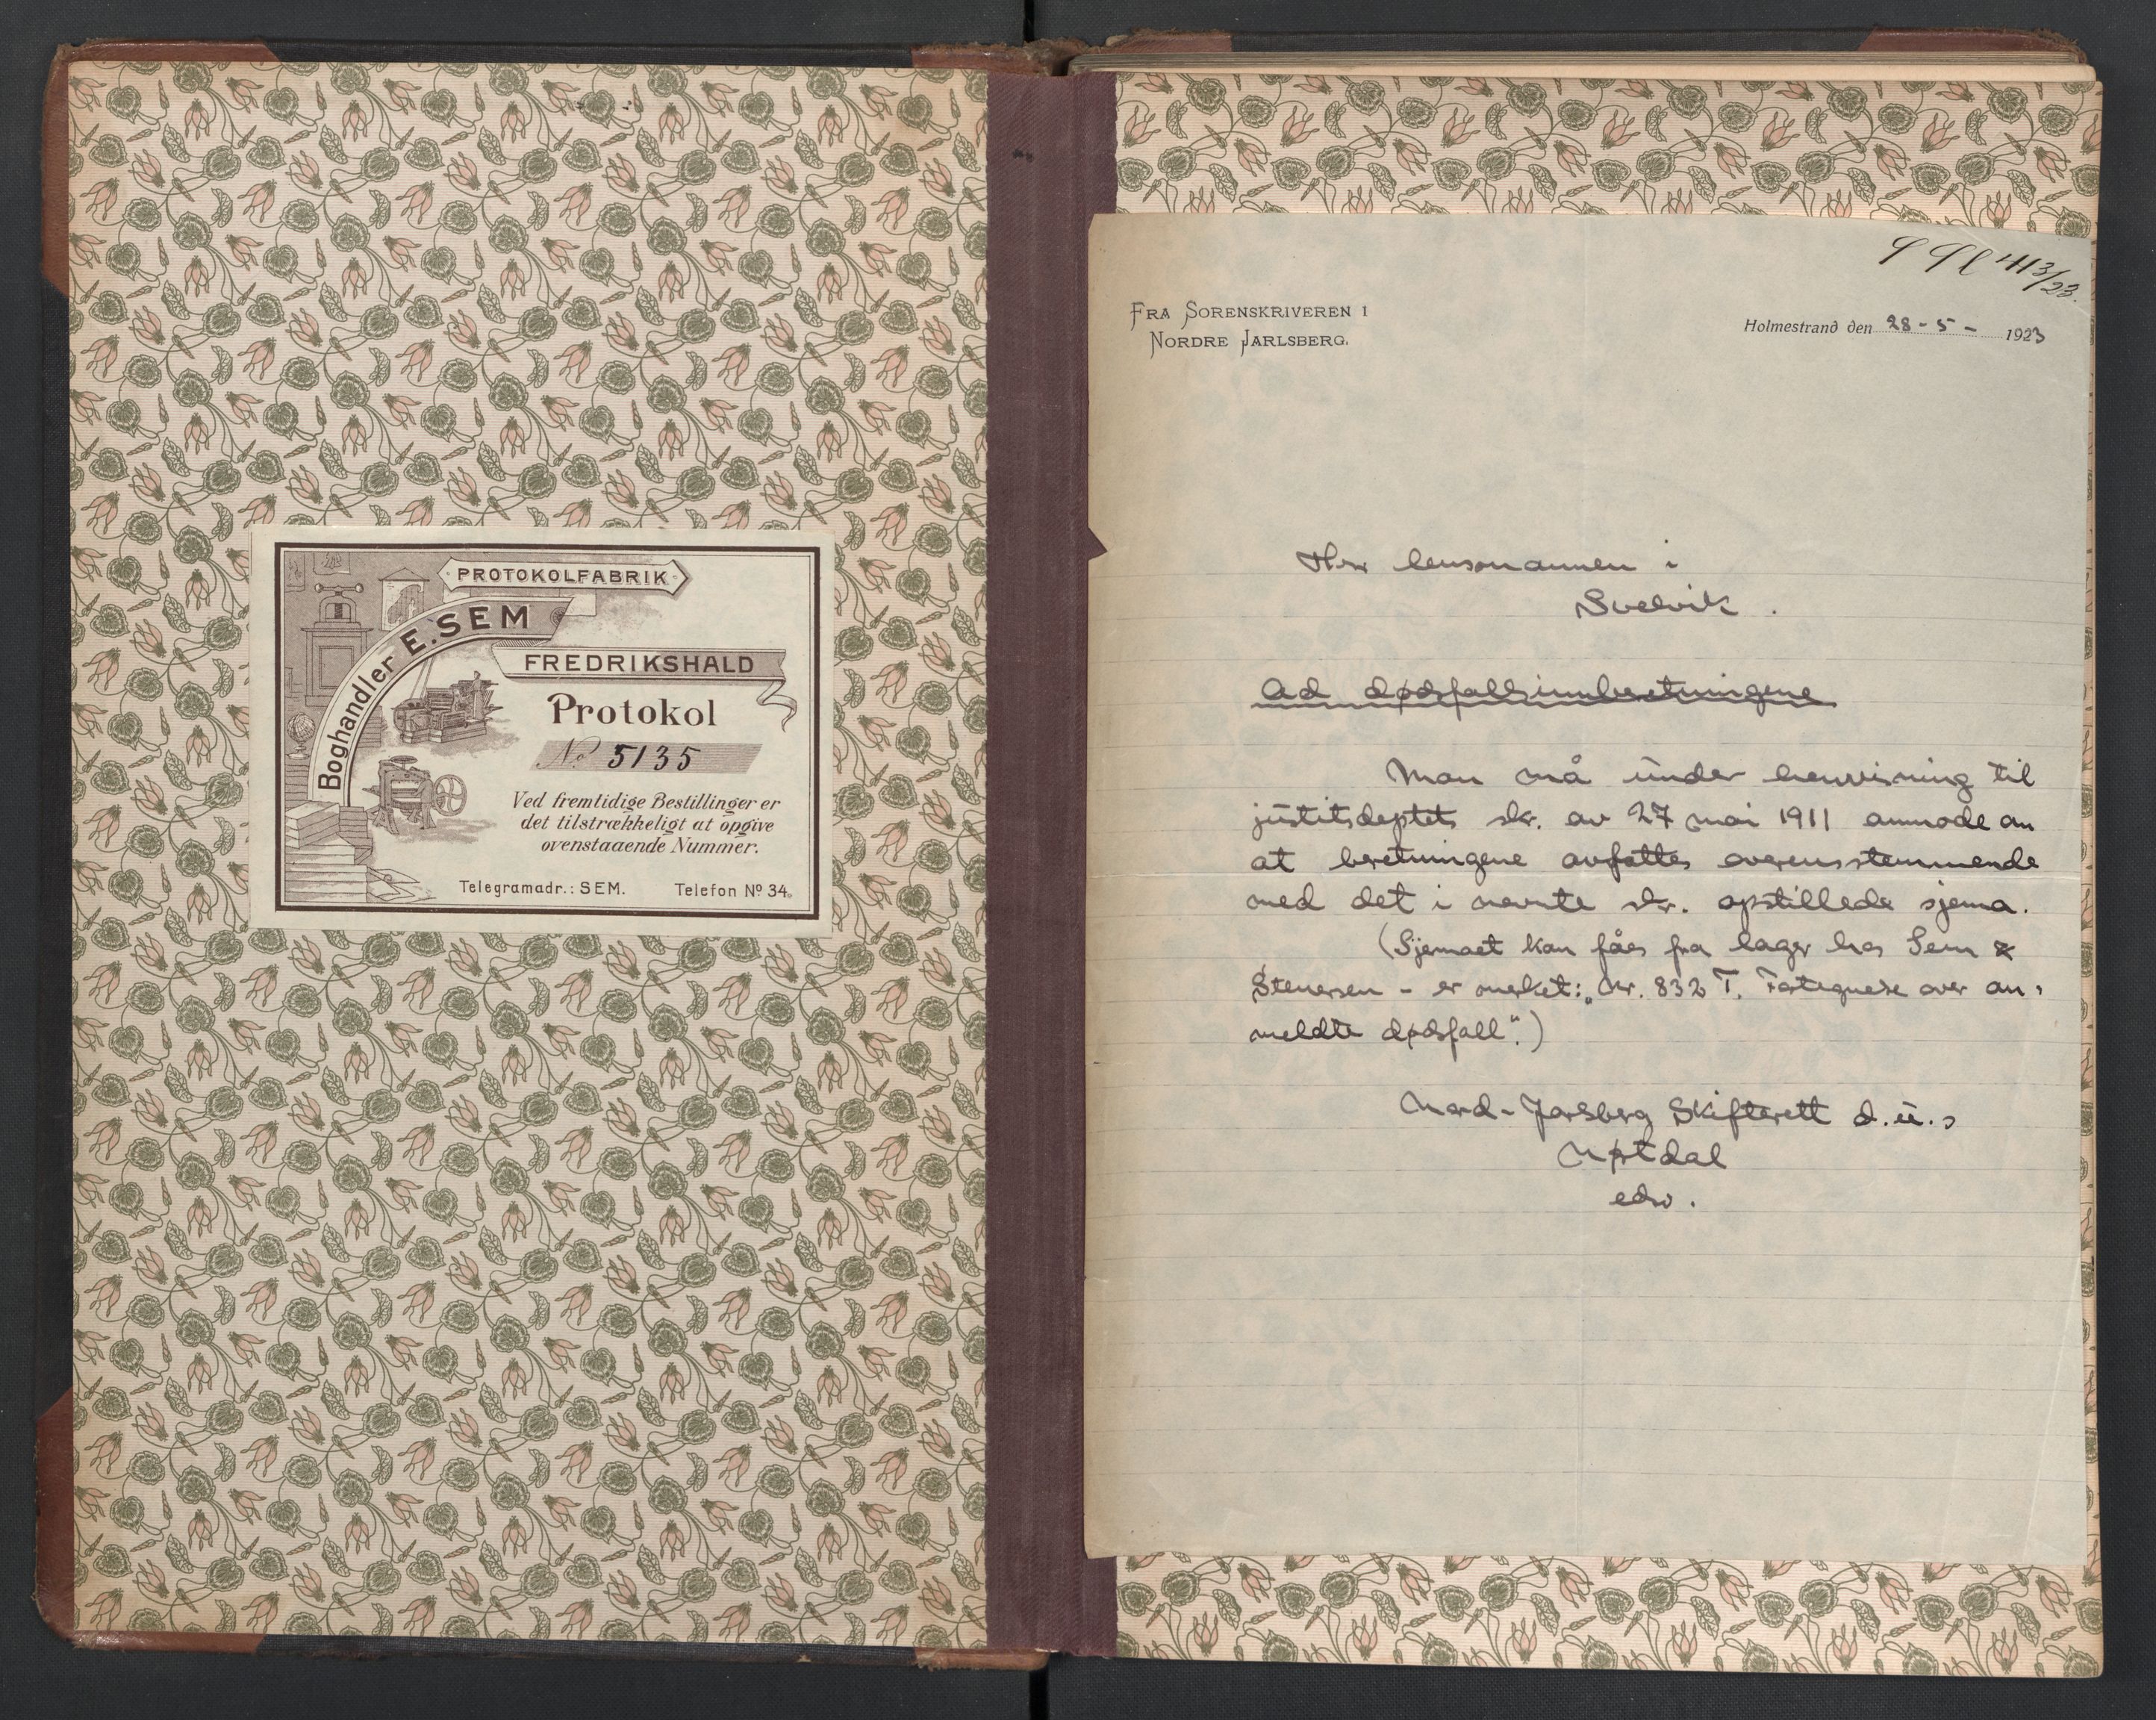 PROTOKOLFABRIK
Boghandler E. SEM
FREDRIKSHALD
Protokol
No 5135
Ved fremtidige Bestillinger er
det tilstrækkeligt at opgive
ovenstaaende Nummer.
Telegramadr.: SEM. Telefon No 34.
413/23.
FRA SORENSKRIVEREN I
NORDRE JARLSBERG.
Holmestrand den 28-5- 1923
Herr lensmannen i
Svelvik.
Ad dødsfallsinnberetningene
Man må under henvisning til
justitsdeptets skr. av 27 mai 1911 anmode om
at beretningene avfattes overensstemmende
med det i nevnte skr. opstillede sjema.
(Sjemaet kan fåes fra lager hos Sem &
Stenersen - er merket: „Nr. 832 T. Fortegnelse over an-
meldte dødsfall".)
Nord-Jarlsberg Skifterett d. u.s
edsv.